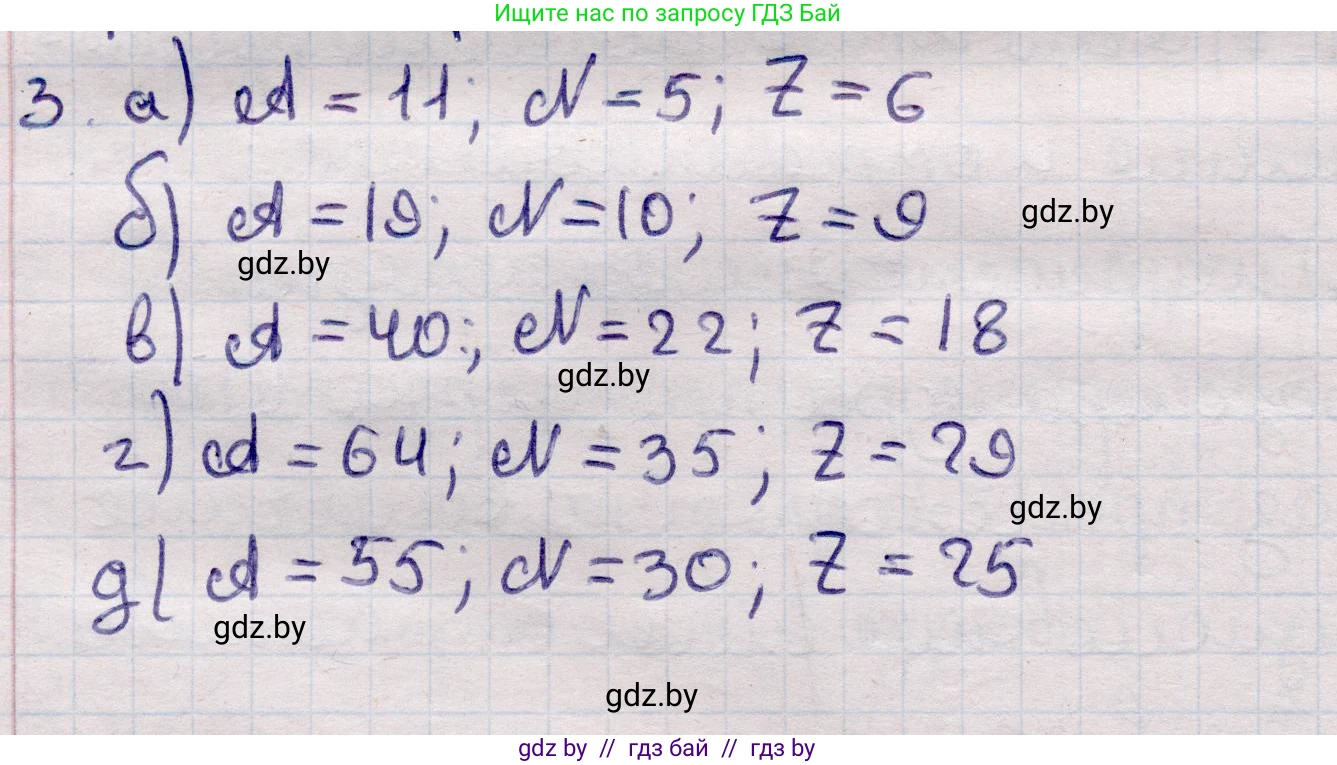 Ищите нас по запросу ГДЗ Бай
3. а) A = 11; N = 5; Z = 6
б) A = 19; N = 10; Z = 9
gdz.by
gdz.by
в) A = 40; N = 22; Z = 18
gdz.by
г) A = 64; N = 35; Z = 29
gdz.by
д) A = 55; N = 30; Z = 25
gdz.by
gdz.by
gdz by // гдз бай // гдз by